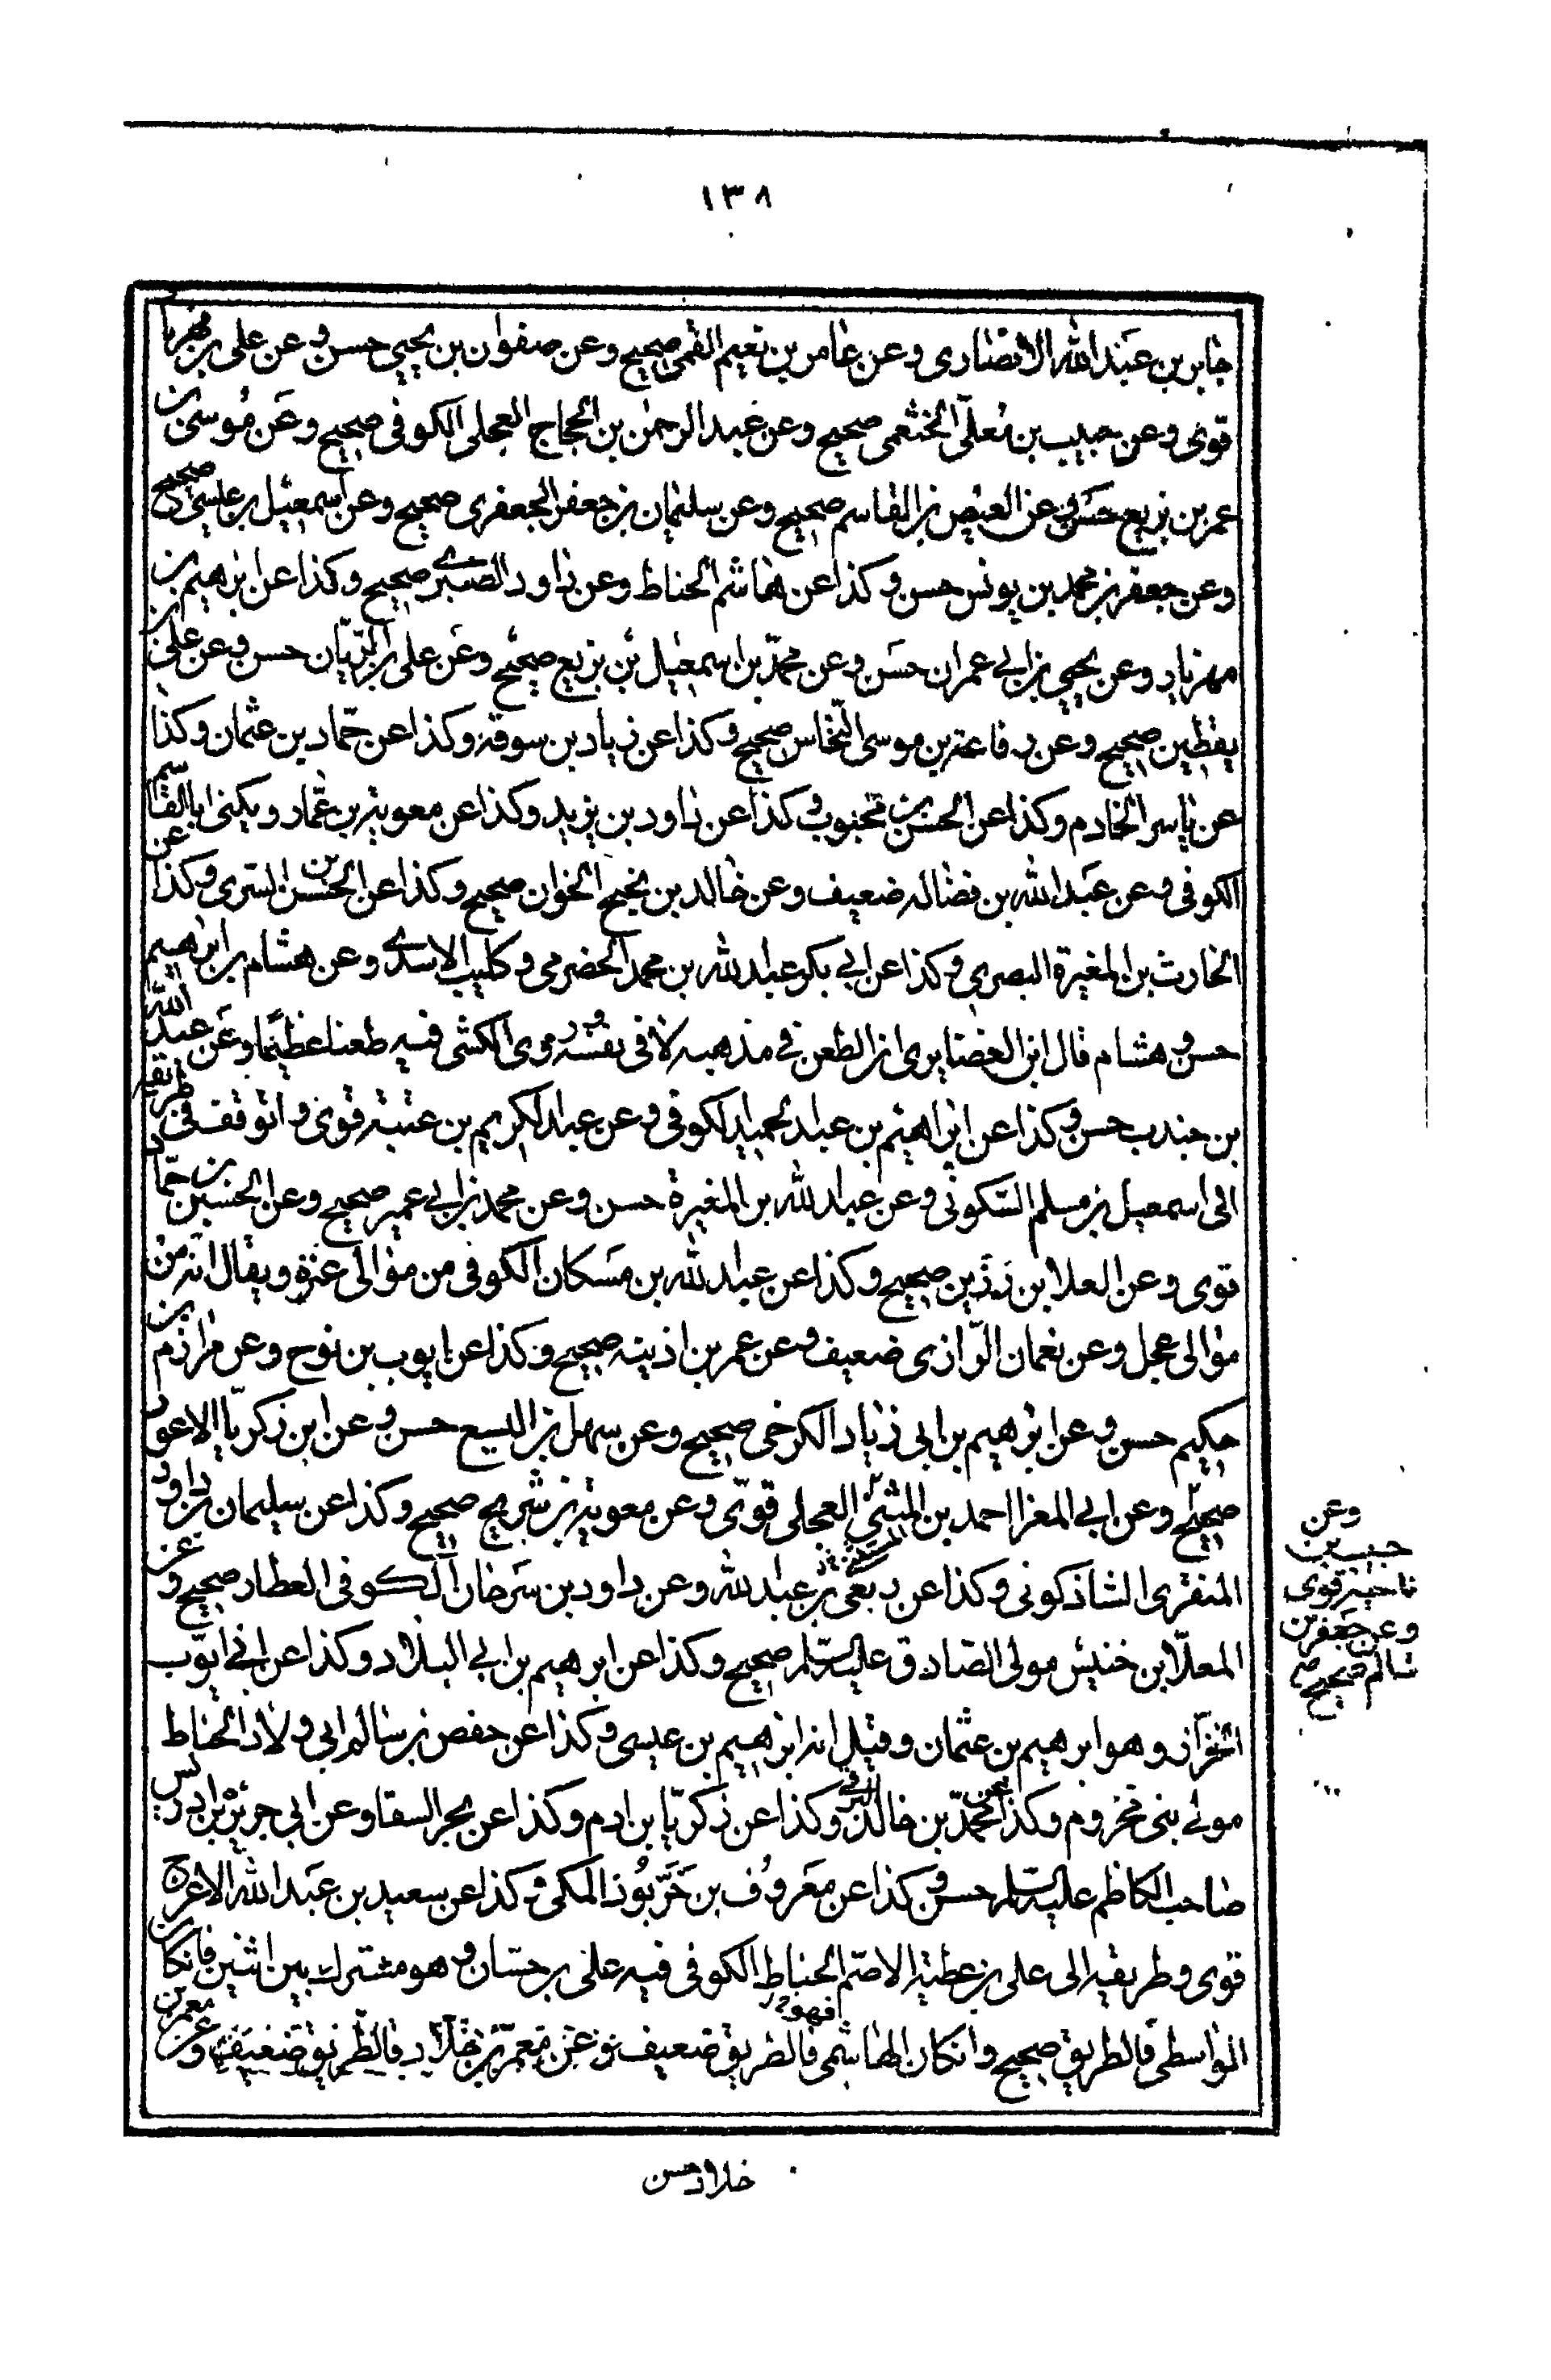 ١٣٨
جابر بن عبد الله الانصارى وعن عامر بن نعيم القمى صحيح وعن صفوان بن يحيى حسن وعن على بن مهزيار
قوى وعن حبيب بن معلى الخثعمى صحيح وعن عبد الرحمن بن الحجاج البجلى الكوفى صحيح وعن موسى بن
عمر بن بزيع حسن وعن العيص بن القاسم صحيح وعن سليمان بن جعفر الجعفرى صحيح وعن اسمعيل بن عيسى صحيح
وعن جعفر بن محمد بن يونس حسن وكذا عن هاشم الحناط وعن داود الصيرفى صحيح وكذا عن ابرهيم بن
مهزيار وعن يحيى بن ابى عمران حسن وعن محمد بن اسمعيل بن بزيع صحيح وعن على بن الريان حسن وعن على بن
يقطين صحيح وعن رفاعة بن موسى النخاس صحيح وكذا عن زياد بن سوقه وكذا عن حماد بن عثمان وكذا
عن ياسر الخادم وكذا عن الحسن بن محبوب وكذا عن داود بن يزيد وكذا عن معوية بن عمار ويكنى ابا القاسم
الكوفى وعن عبد الله بن فضاله ضعيف وعن خالد بن نجيح الخوان صحيح وكذا عن الحسن بن السرى وكذا عن
الحارث بن المغيرة البصرى وكذا عن ابى بكر عبد الله بن محمد الحضرمى وكليب الاسدى وعن هشام بن ابرهيم
حسن وهشام قال ابن الغضايرى ان الطعن فى مذهبه لا فى نفسه وروى الكشى فيه طعنا عظيما وعن عبد الله
بن جندب حسن وكذا عن ابراهيم بن عبد الحميد الكوفى وعن عبد الكريم بن عتبة قوى واتوقف فى طريقه
الى اسمعيل بن مسلم السكونى وعن عبد الله بن المغيرة حسن وعن محمد بن ابى عمير صحيح وعن الحسين بن حماد
قوى وعن العلا بن رزين صحيح وكذا عن عبد الله بن مسكان الكوفى من موالى عنزة ويقال انه من
موالى عجل وعن نعمان الرازى ضعيف وعن عمر بن اذينه صحيح وكذا عن ايوب بن نوح وعن مرازم بن
حكيم حسن وعن ابرهيم بن ابى زياد الكرخى صحيح وعن سهل بن اليسع حسن وعن ابن زكريا الاعور
صحيح وعن ابى المغرا احمد بن المثنى العجلى قوى وعن معوية بن شريح صحيح وكذا عن سليمان بن داود
المنقرى الشاذكونى وكذا عن ربعى بن عبد الله وعن داود بن سرحان الكوفى العطار صحيح وعن
المعلا بن خنيس مولى الصادق عليه السلم صحيح وكذا عن ابرهيم بن ابى البلاد وكذا عن ابى ايوب
الخزاز وهو ابرهيم بن عثمان وقيل انه ابرهيم بن عيسى وكذا عن حفص بن سالم ابى ولاد الحناط
مولى بنى مخزوم وكذا عن محمد بن خالد البرقى وكذا عن زكريا بن ادم وكذا عن بحر السقا وعن ابى جرير بن ادريس
صاحب الكاظم عليه السلم حسن وكذا عن معروف بن خربوذ المكى وكذا عن سعيد بن عبد الله الاعرج
قوى وطريقه الى على بن عطية الاصم الحناط الكوفى فيه على بن حسان وهو مشترك بين اثنين فان كان
الواسطى فالطريق صحيح وان كان الهاشمى فهو فالطريق ضعيف وعن معمر بن خلاد فالطريق ضعيف وعن معمر بن
وعن
حبيب بن
ناجية قوى
وعن جعفر بن
سالم صحيح صح
خلاد حسن